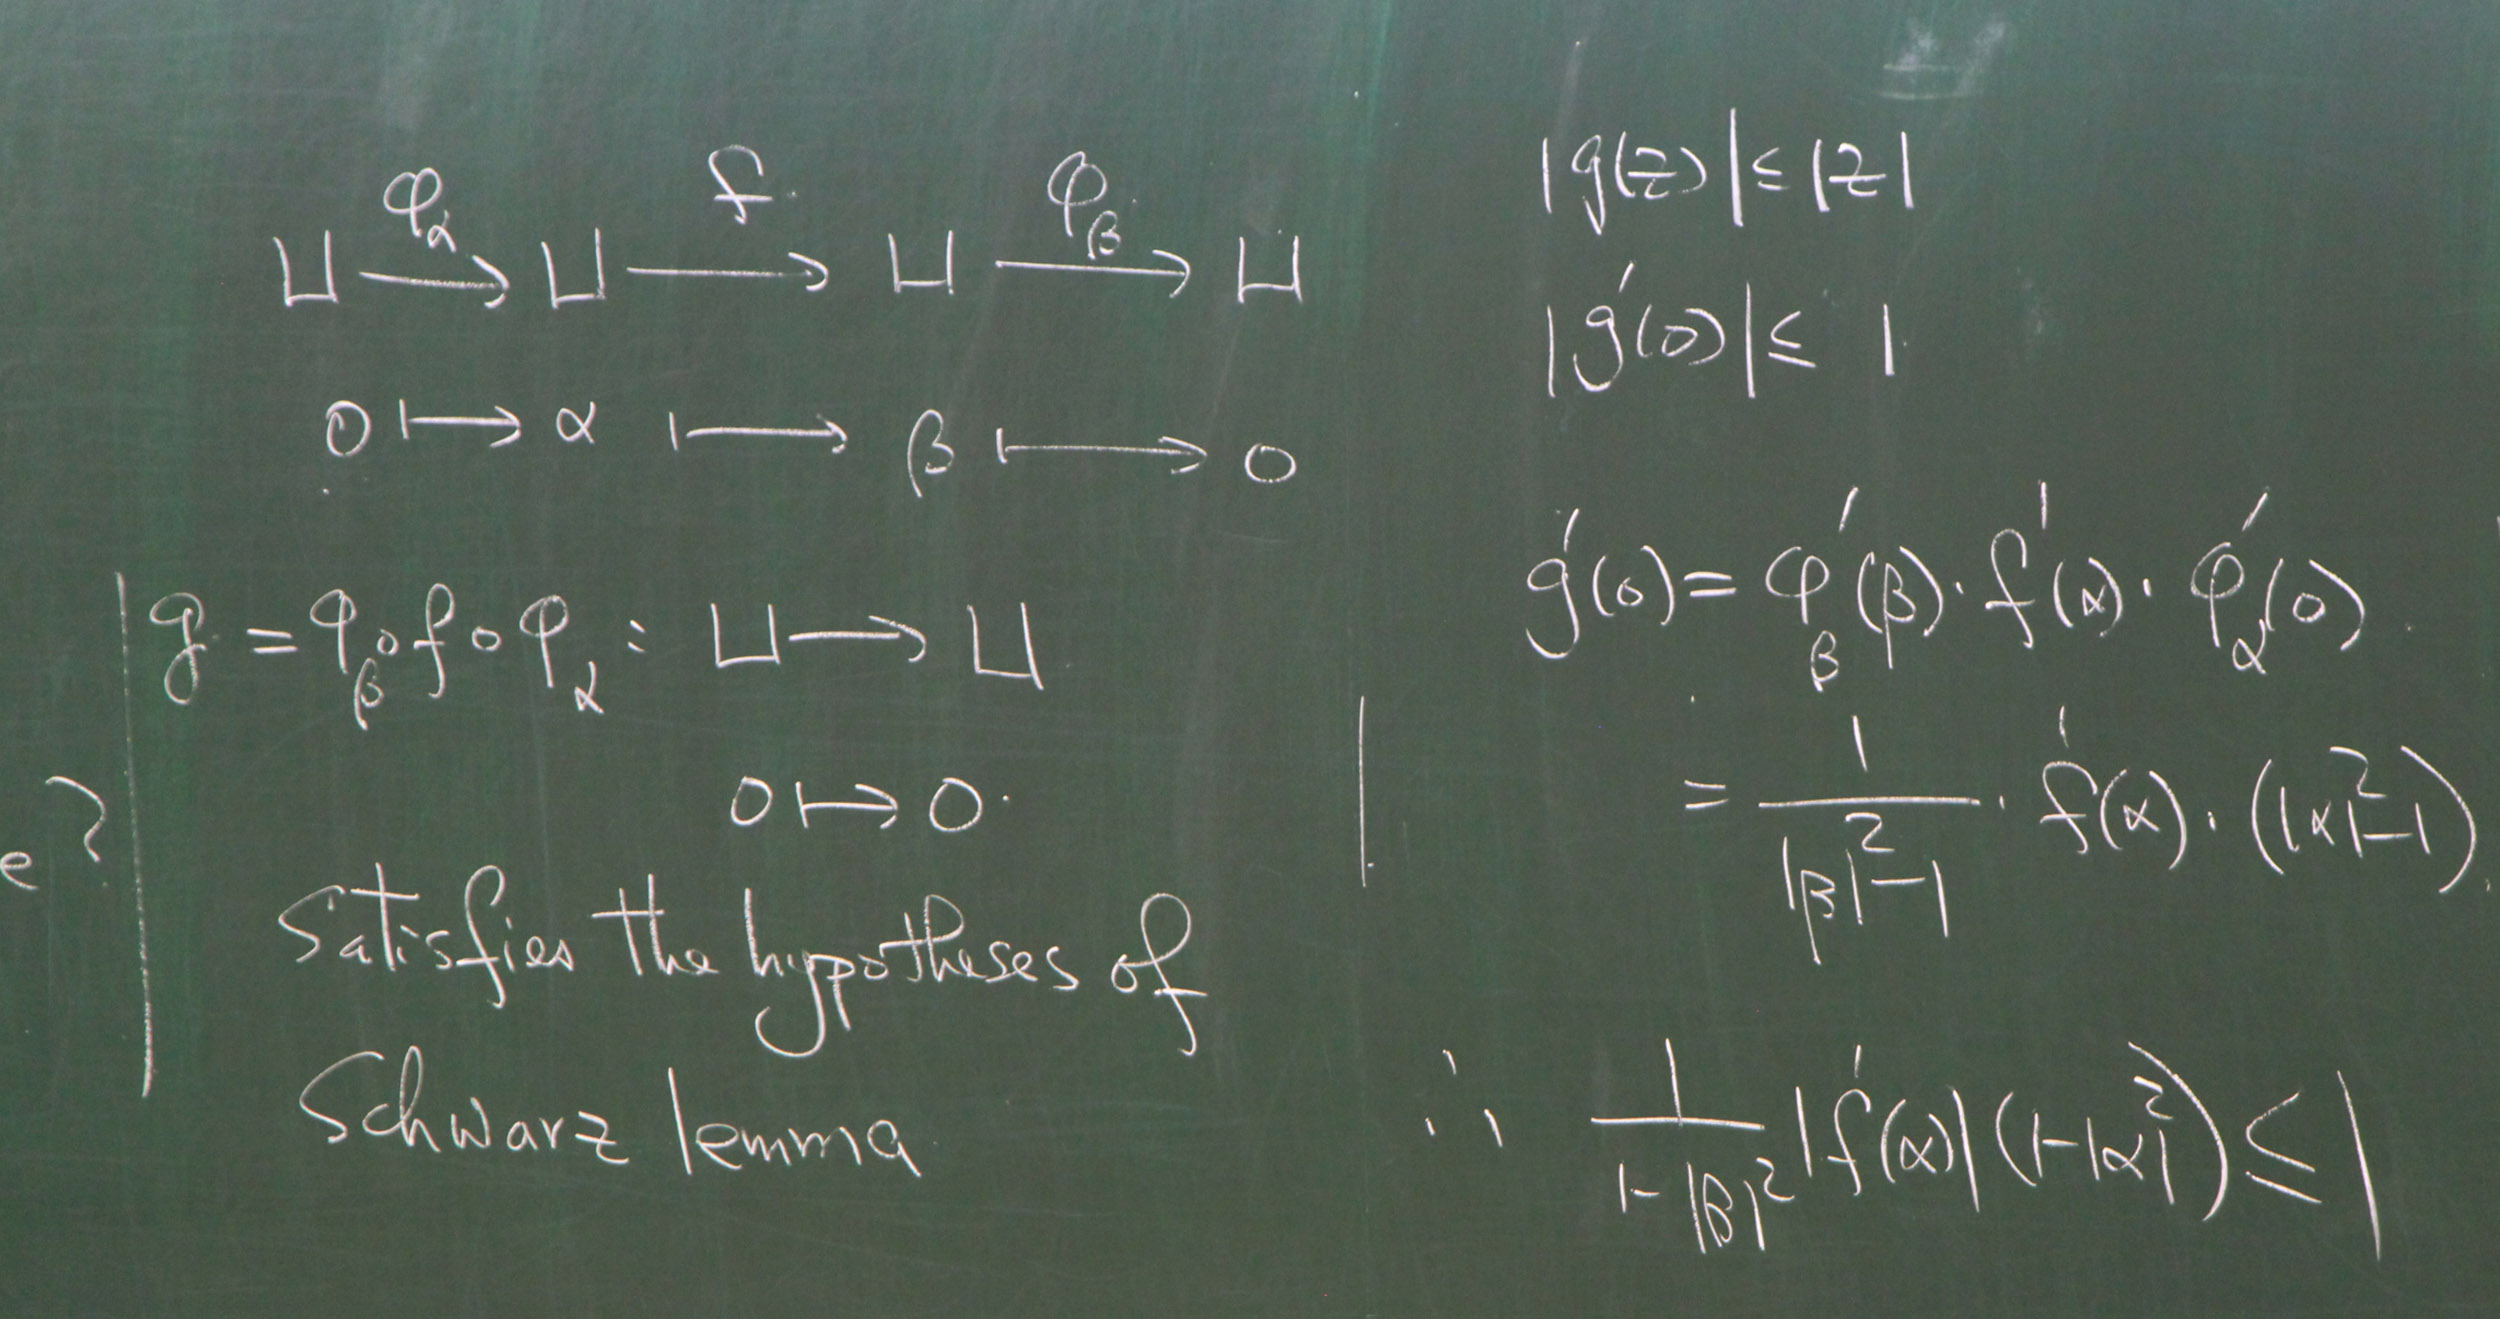 U --φ_α--> U --f--> U --φ_β--> U
0 ↦ α ↦ β ↦ 0
g = φ_β ∘ f ∘ φ_α : U → U
0 ↦ 0.
satisfies the hypotheses of
Schwarz lemma
e?
|g(z)| ≤ |z|
|g'(0)| ≤ 1
g'(0) = φ'_β(β) · f'(α) · φ'_α(0).
= 1/(|β|²-1) · f'(α) · (|α|²-1).
∴ 1/(1-|β|²) |f'(α)| (1-|α|²) ≤ 1